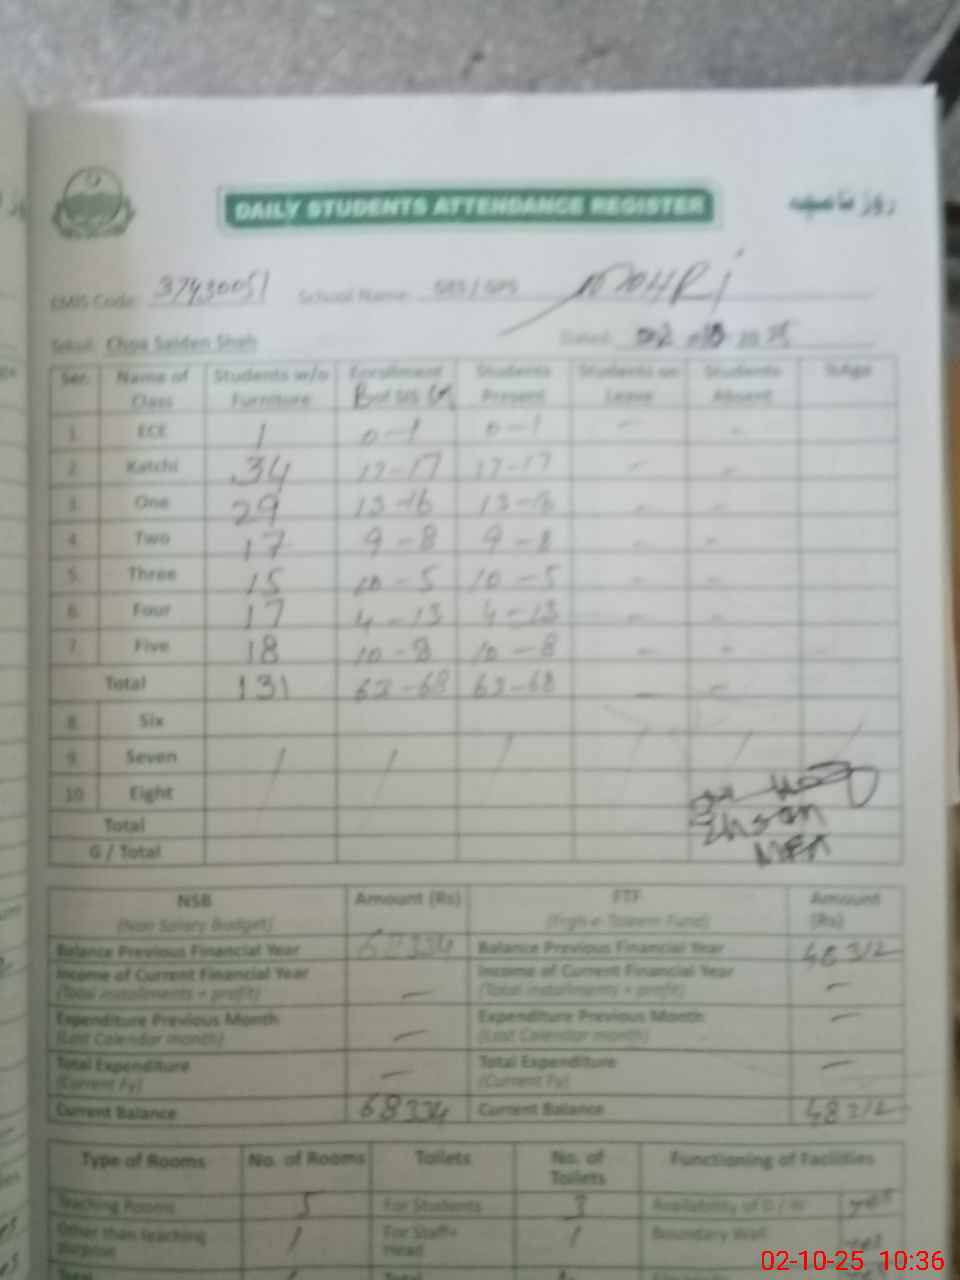 روزنامچہ
DAILY STUDENTS ATTENDANCE REGISTER
EMIS Code: 37430051 School Name: GES / GPS MOHRI
Choa Saiden Shah Dated: 02 20 25
Ser. Name of Class Students w/o Furniture Enrollment B G Students Present Students on Leave Students Absent
1. ECE 1 0-1 0-1 - -
2. Katchi 34 17-17 17-17 - -
3. One 29 13-16 13-16 - -
4. Two 17 9-8 9-8 - -
5. Three 15 10-5 10-5 - -
6. Four 17 4-13 4-13 - -
7. Five 18 10-8 10-8 - -
Total 131 63-68 63-68 - -
8. Six
9. Seven
10. Eight
Ehsan
MEA
Total
G / Total
NSB Amount (Rs) FTF Amount (Rs)
(Non Salary Budget)
Balance Previous Financial Year 68334 Balance Previous Financial Year 48312
Income of Current Financial Year - Income of Current Financial Year -
(Total installments + profit) (Total installments + profit)
Expenditure Previous Month - Expenditure Previous Month -
(Last Calendar month) (Last Calendar month)
Total Expenditure - Total Expenditure -
(Current Fy) (Current Fy)
Current Balance 68334 Current Balance 48312
Type of Rooms No. of Rooms Toilets No. of Toilets Functioning of Facilities
Teaching Rooms 5 For Students 3 Availability of D / W yes
Other than teaching purpose 1 For Staff+ Head 1 Boundary Wall yes
Total Total
02-10-25 10:36